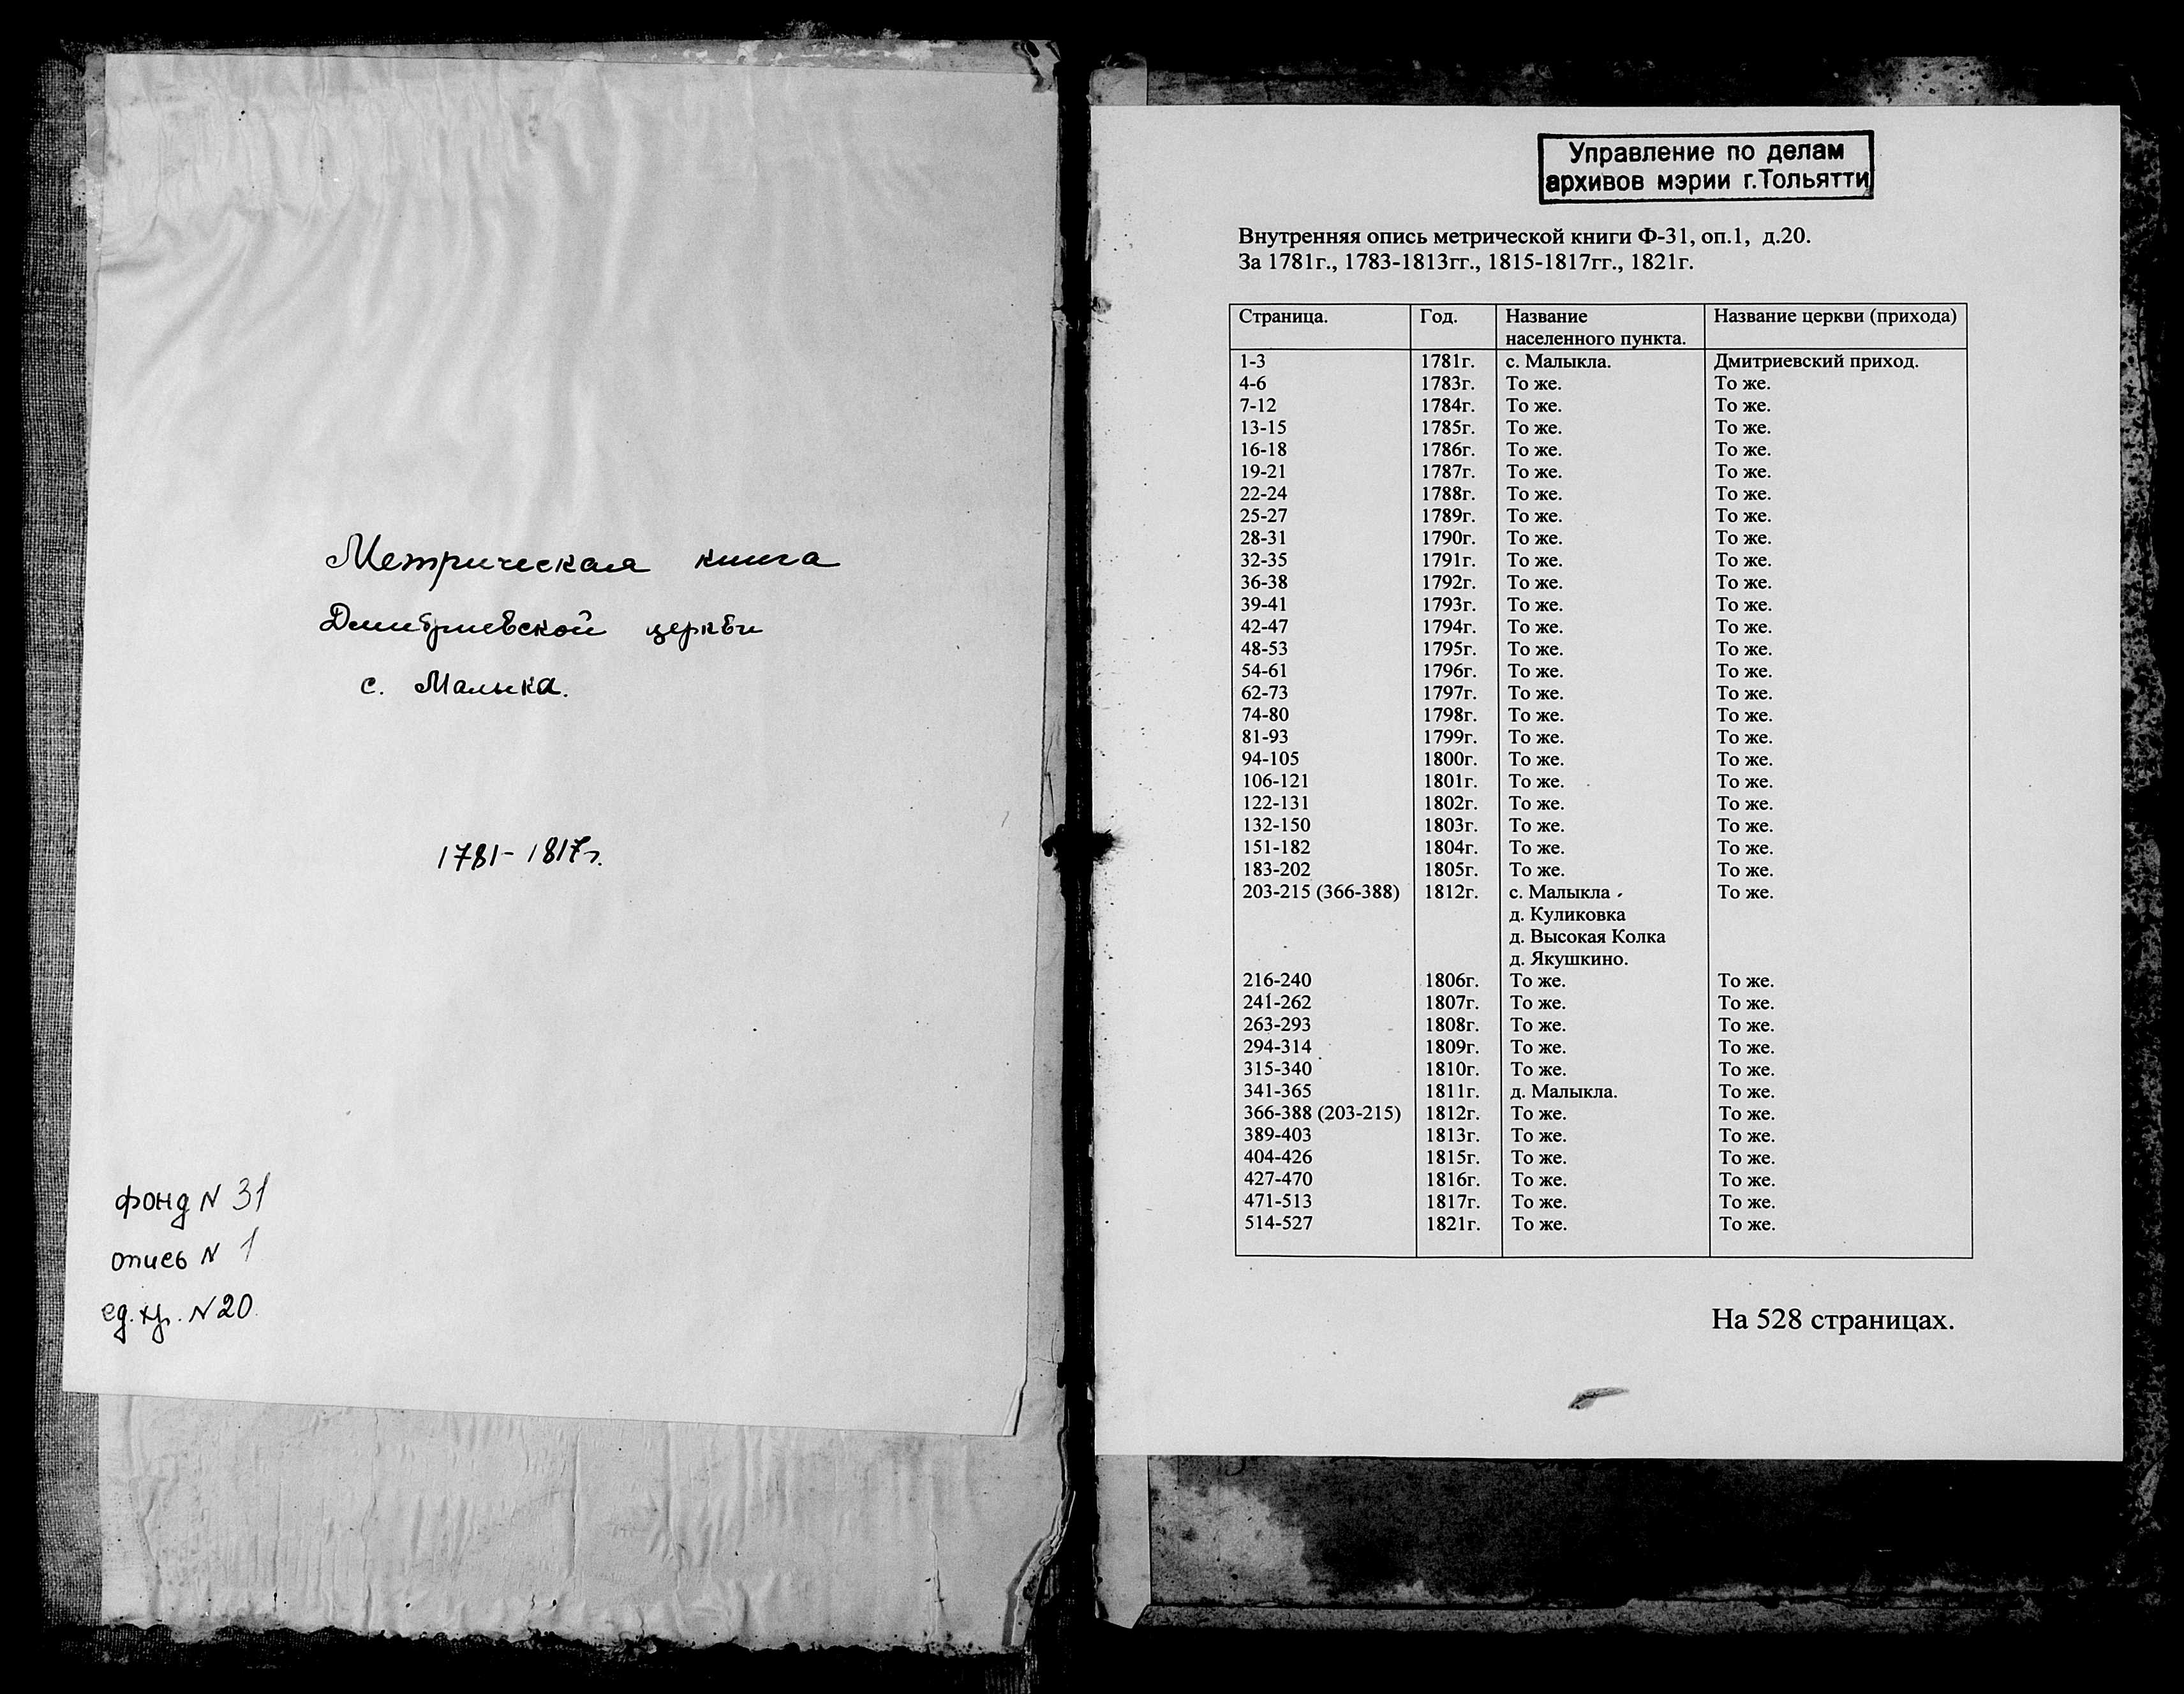 Метрическая книга
Дмитриевской церкви
с. Малыка.
1781-1817г.
фонд N 31
опись N 1
ед.хр. N20.
Управление по делам
архивов мэрии г.Тольятти
Внутренняя опись метрической книги Ф-31, оп.1, д.20.
За 1781г., 1783-1813гг., 1815-1817гг., 1821г.
Страница. Год. Название населенного пункта. Название церкви (прихода)
1-3 1781г. с. Малыкла. Дмитриевский приход.
4-6 1783г. То же. То же.
7-12 1784г. То же. То же.
13-15 1785г. То же. То же.
16-18 1786г. То же. То же.
19-21 1787г. То же. То же.
22-24 1788г. То же. То же.
25-27 1789г. То же. То же.
28-31 1790г. То же. То же.
32-35 1791г. То же. То же.
36-38 1792г. То же. То же.
39-41 1793г. То же. То же.
42-47 1794г. То же. То же.
48-53 1795г. То же. То же.
54-61 1796г. То же. То же.
62-73 1797г. То же. То же.
74-80 1798г. То же. То же.
81-93 1799г. То же. То же.
94-105 1800г. То же. То же.
106-121 1801г. То же. То же.
122-131 1802г. То же. То же.
132-150 1803г. То же. То же.
151-182 1804г. То же. То же.
183-202 1805г. То же. То же.
203-215 (366-388) 1812г. с. Малыкла То же.
д. Куликовка
д. Высокая Колка
д. Якушкино.
216-240 1806г. То же. То же.
241-262 1807г. То же. То же.
263-293 1808г. То же. То же.
294-314 1809г. То же. То же.
315-340 1810г. То же. То же.
341-365 1811г. д. Малыкла. То же.
366-388 (203-215) 1812г. То же. То же.
389-403 1813г. То же. То же.
404-426 1815г. То же. То же.
427-470 1816г. То же. То же.
471-513 1817г. То же. То же.
514-527 1821г. То же. То же.
На 528 страницах.